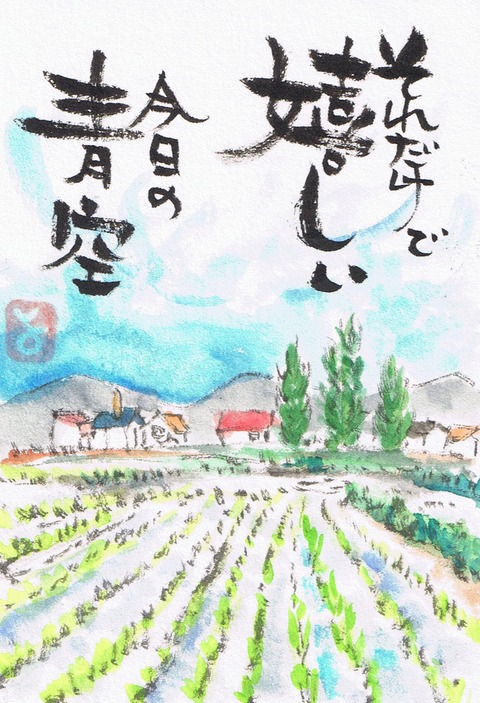 それだけで
嬉しい
今日の
青空